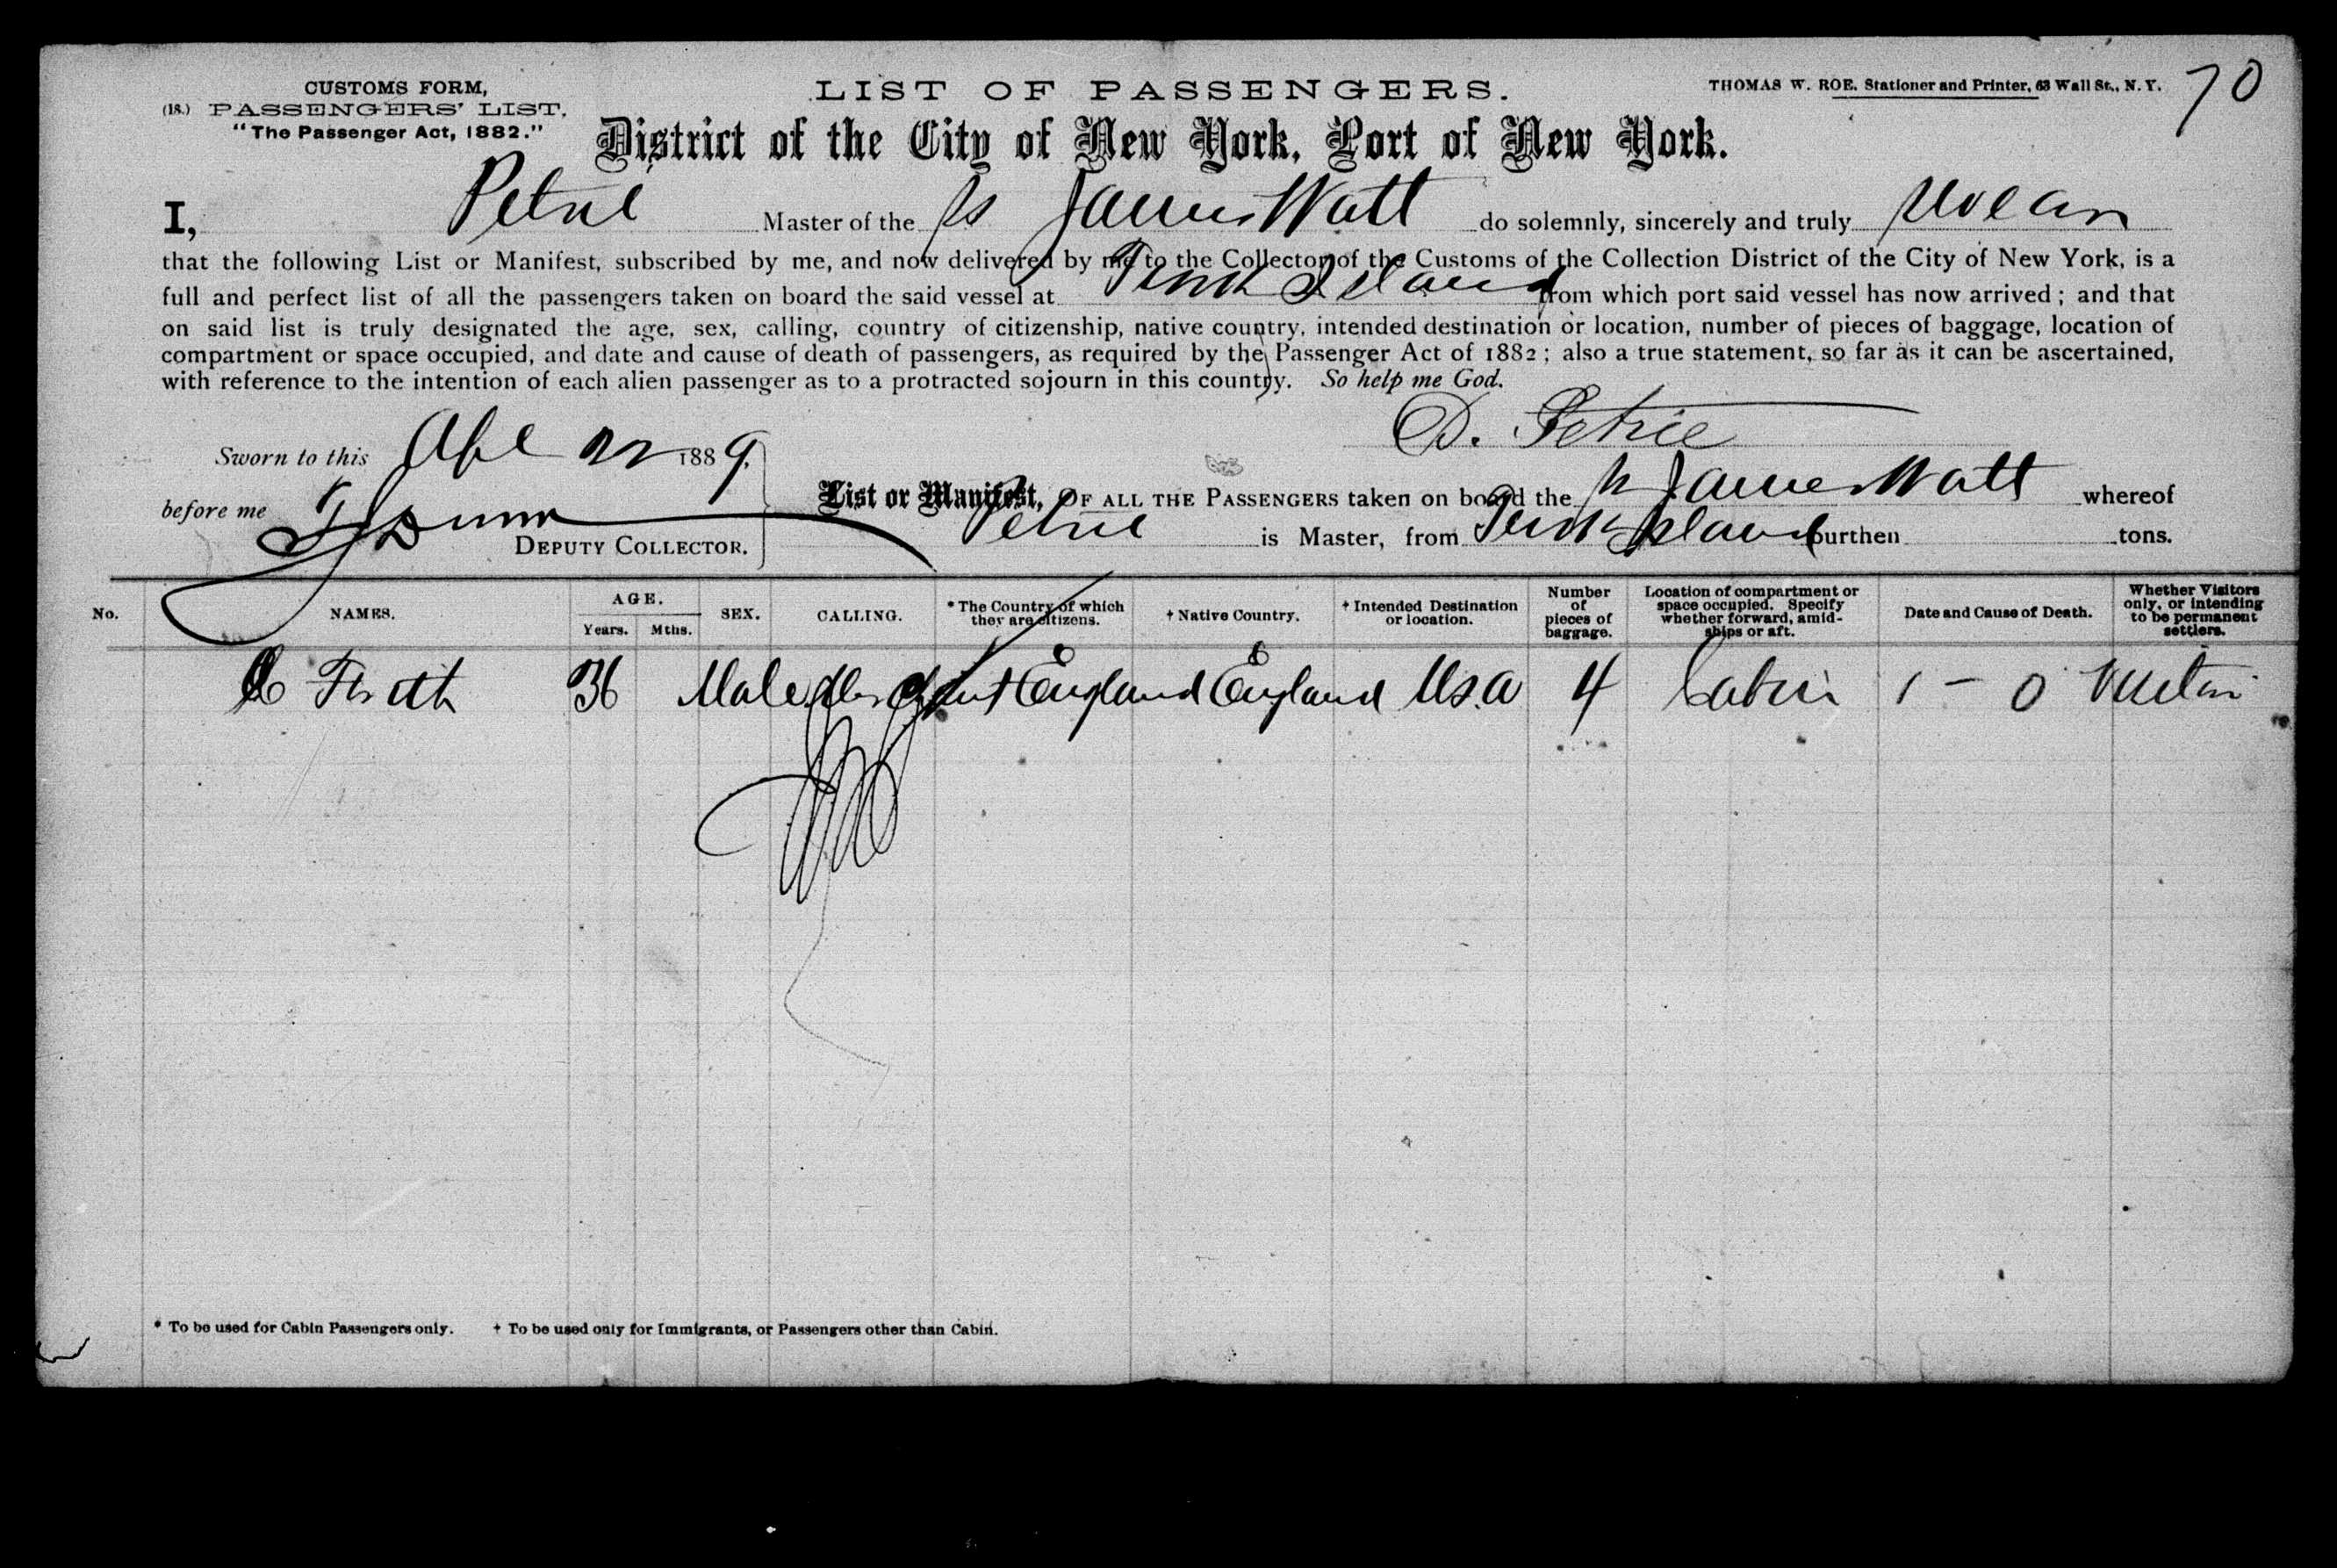 CUSTOMS FORM,
(18.) PASSENGERS' LIST.
"The Passenger Act, 1882."
LIST OF PASSENGERS.
THOMAS W. ROE, Stationer and Printer, 63 Wall St., N. Y.
70
District of the City of New York, Port of New York.
I, Petrie Master of the ss James Watt do solemnly, sincerely and truly swear
that the following List or Manifest, subscribed by me, and now delivered by me to the Collector of the Customs of the Collection District of the City of New York, is a
full and perfect list of all the passengers taken on board the said vessel at Turk Island from which port said vessel has now arrived; and that
on said list is truly designated the age, sex, calling, country of citizenship, native country, intended destination or location, number of pieces of baggage, location of
compartment or space occupied, and date and cause of death of passengers, as required by the Passenger Act of 1882; also a true statement, so far as it can be ascertained,
with reference to the intention of each alien passenger as to a protracted sojourn in this country. So help me God.
D. Petrie
Sworn to this Apl 22 1889.
before me Dunn
DEPUTY COLLECTOR.
List or Manifest, OF ALL THE PASSENGERS taken on board the James Watt whereof
Petrie is Master, from Turk Island burthen tons.
No. NAMES. AGE. Years. Mths. SEX. CALLING. * The Country of which they are citizens. † Native Country. † Intended Destination or location. Number of pieces of baggage. Location of compartment or space occupied. Specify whether forward, amidships or aft. Date and Cause of Death. Whether Visitors only, or intending to be permanent settlers.
Frith 36 Male England England U.S.A 4 Cabin 1 - 0
* To be used for Cabin Passengers only. † To be used only for Immigrants, or Passengers other than Cabin.